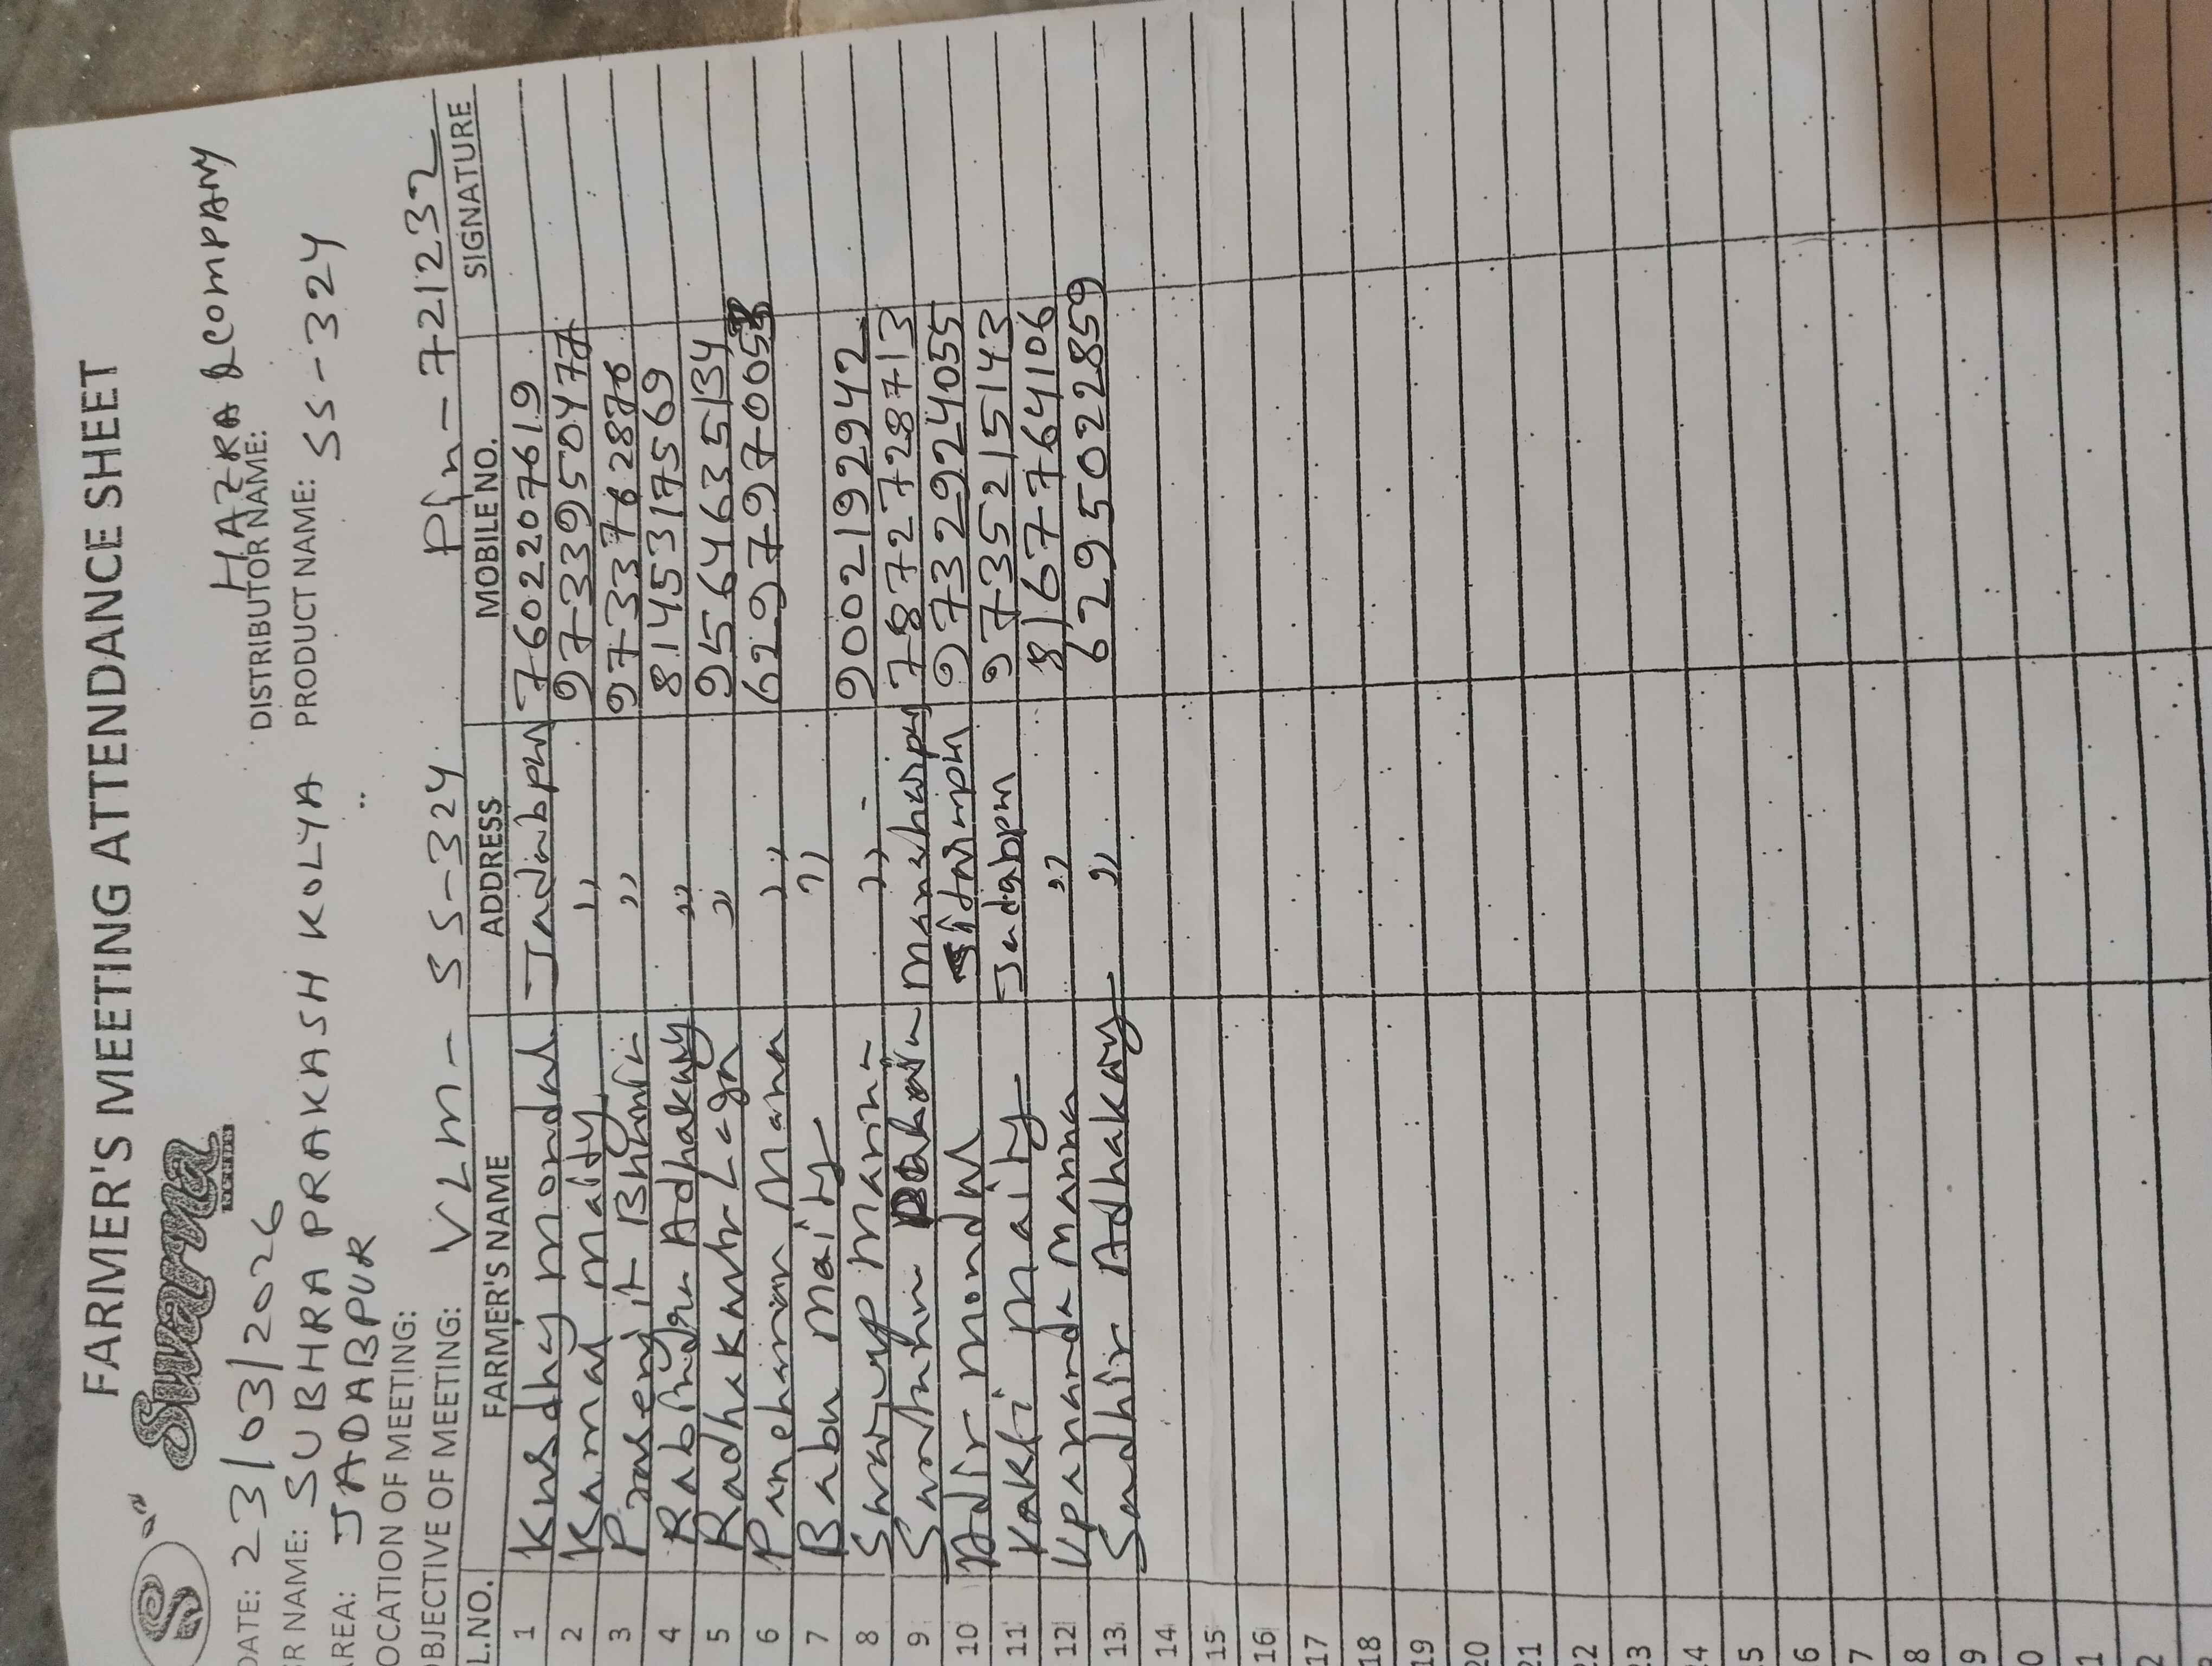 FARMER'S MEETING ATTENDANCE SHEET
Swarna
DATE: 23/03/2026 DISTRIBUTOR NAME: HAZRA & COMPANY
ER NAME: SUBHRA PRAKASH KOLYA PRODUCT NAME: SS-324
AREA: JADABPUR
LOCATION OF MEETING:
OBJECTIVE OF MEETING: VLM - SS-324 Pin - 721232
L.NO. FARMER'S NAME ADDRESS MOBILE NO. SIGNATURE
1 mondal Jadabpur 7602207619
2 Kamal Maity " 9733950477
3 Prasenjit Bhunia "
4 Rabindra Adhakary " 8145317569
5 Radhakanta " 9564635134
6 Manna "
7 Babu Maity "
8 Swarup Manna " 9002192942
9 7872728713
10 mondal 9732924055
11 Kakli Maity Jadabpur 9735215143
12 Manna " 8167764106
13 Sudhir Adhakary " 6295022859
14
15
16
17
18
19
20
21
22
23
24
5
6
7
8
9
0
1
2